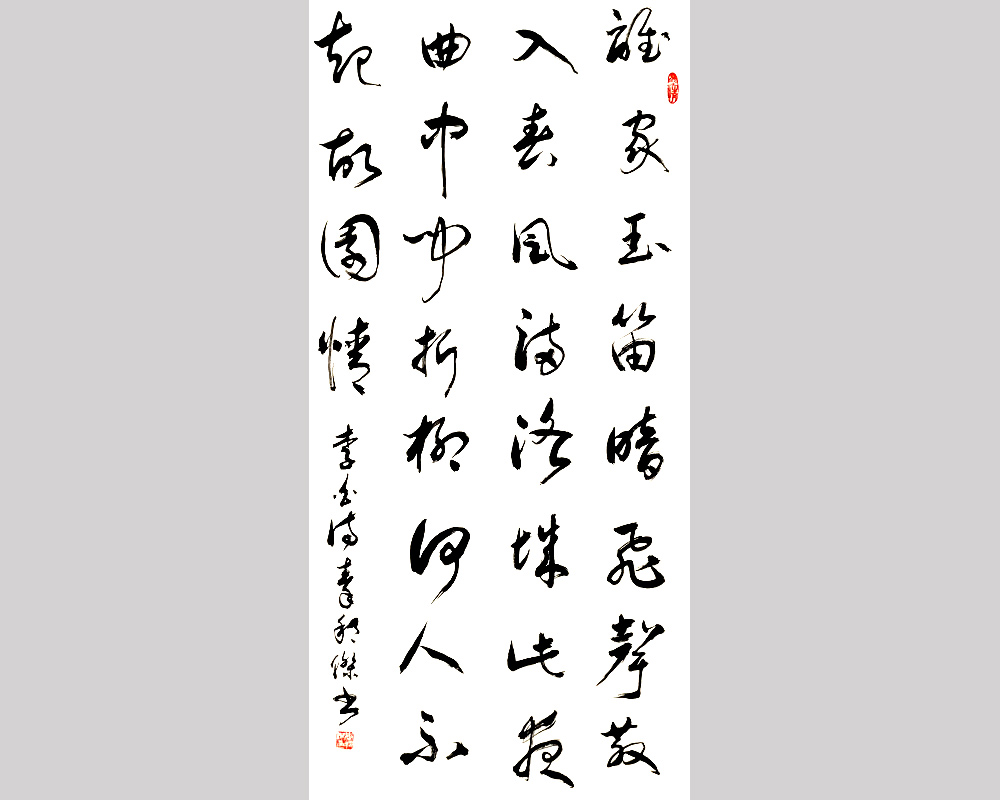 誰家玉笛暗飛聲散
入春風滿洛城此夜
曲中聞折柳何人不
起故園情 李白詩 傑书